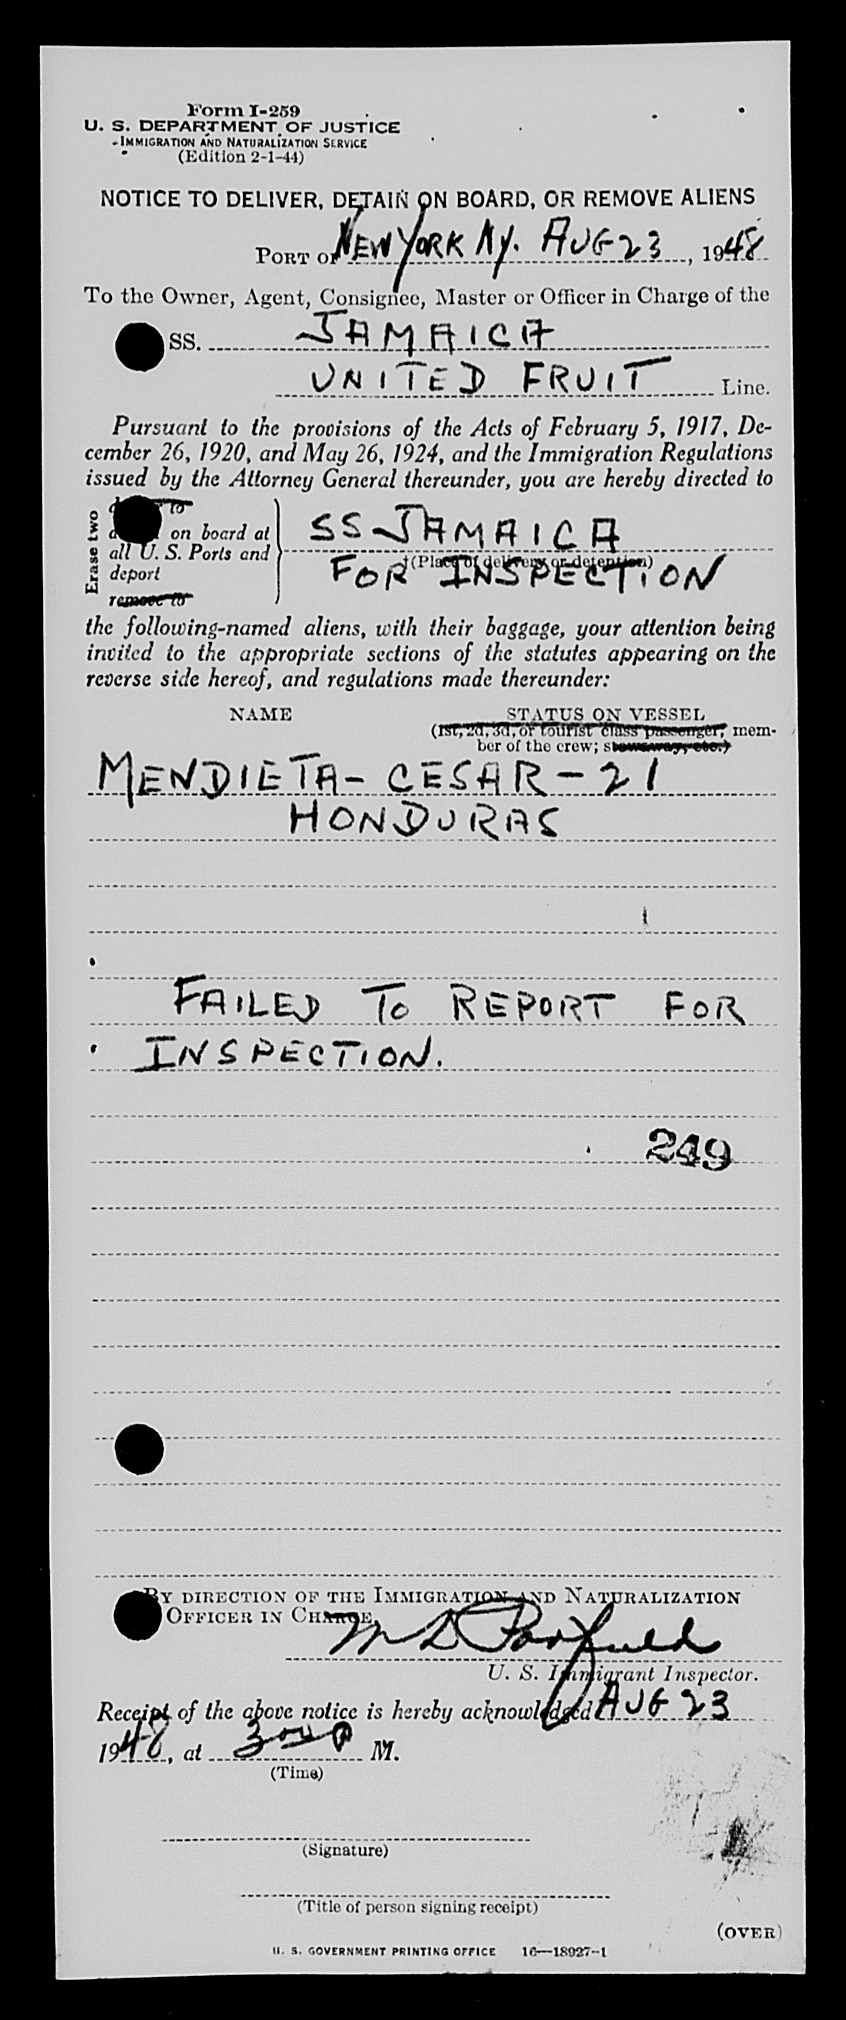 Form I-259
U. S. DEPARTMENT OF JUSTICE
IMMIGRATION AND NATURALIZATION SERVICE
(Edition 2-1-44)
NOTICE TO DELIVER, DETAIN ON BOARD, OR REMOVE ALIENS
PORT OF NEW YORK NY. AUG 23, 1948
To the Owner, Agent, Consignee, Master or Officer in Charge of the
SS. JAMAICA
UNITED FRUIT Line.
Pursuant to the provisions of the Acts of February 5, 1917, De-
cember 26, 1920, and May 26, 1924, and the Immigration Regulations
issued by the Attorney General thereunder, you are hereby directed to
Erase two
to
on board at
all U. S. Ports and
deport
remove to
SS JAMAICA
†(Place of delivery or detention)
FOR INSPECTION
the following-named aliens, with their baggage, your attention being
invited to the appropriate sections of the statutes appearing on the
reverse side hereof, and regulations made thereunder:
NAME STATUS ON VESSEL
(1st, 2d, 3d, or tourist class passenger; mem-
ber of the crew; stowaway, etc.)
MENDIETA - CESAR - 21
HONDURAS
FAILED TO REPORT FOR
INSPECTION.
249
BY DIRECTION OF THE IMMIGRATION AND NATURALIZATION
OFFICER IN CHARGE
U. S. Immigrant Inspector.
Receipt of the above notice is hereby acknowledged AUG 23
1948, at 300 P M.
(Time)
(Signature)
(Title of person signing receipt)
(OVER)
U. S. GOVERNMENT PRINTING OFFICE 16—18927-1